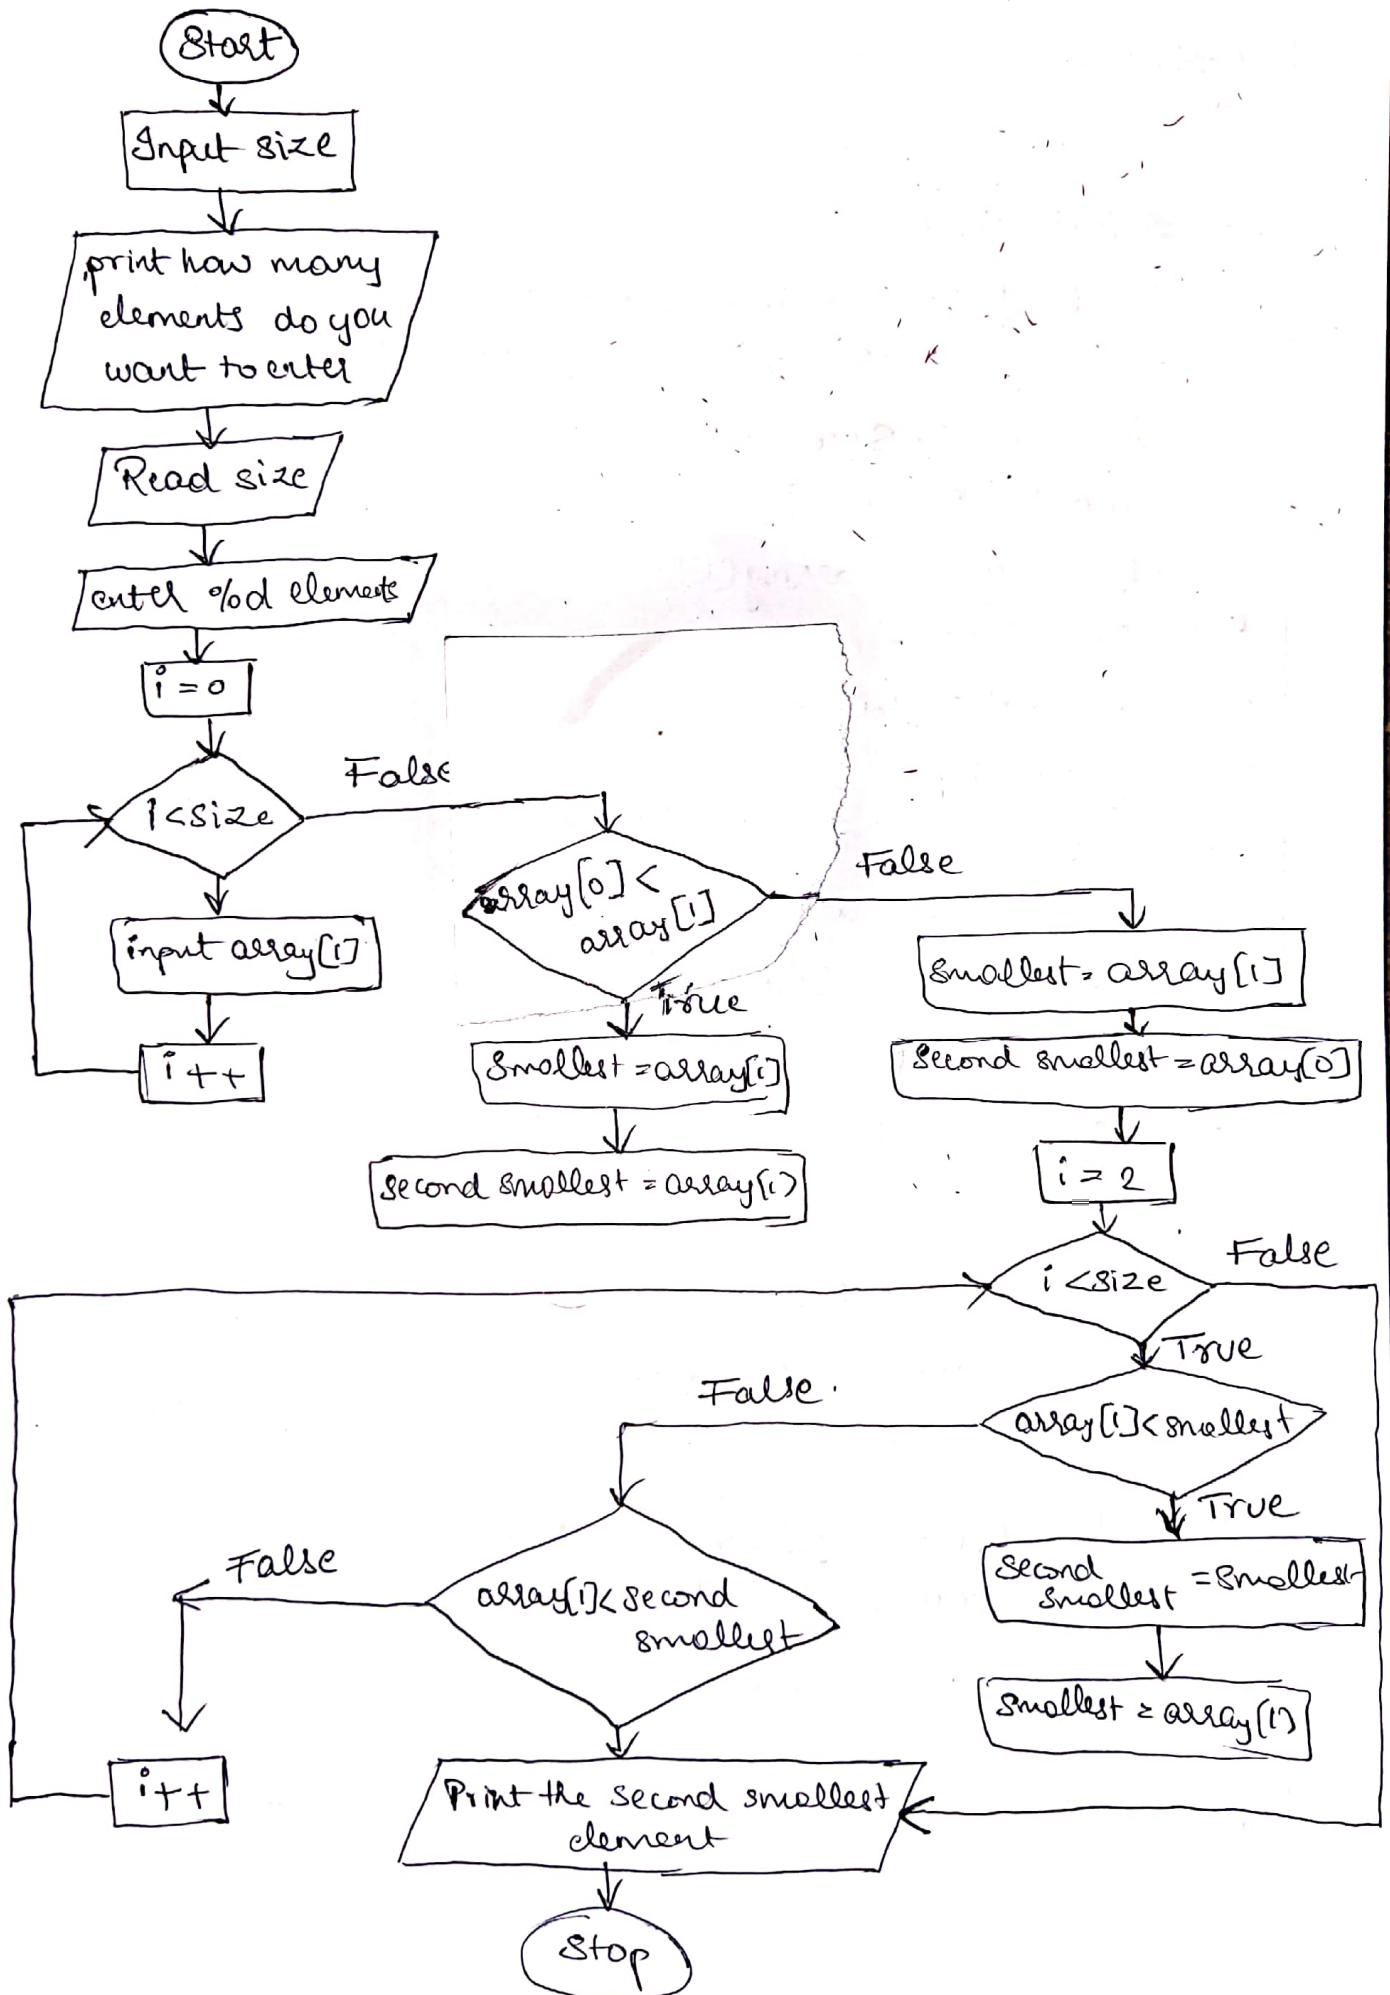 Start
Input size
print how many
elements do you
want to enter
Read size
enter %d elements
i = 0
i < size
False
input array[i]
i ++
array[0] <
array[1]
False
True
Smallest = array[i]
second smallest = array[i]
smallest = array[1]
second smallest = array[0]
i = 2
i < size
False
True
array[i] < smallest
False.
True
second
smallest = smallest
smallest = array[i]
array[i] < second
smallest
False
i++
Print the second smallest
element
Stop